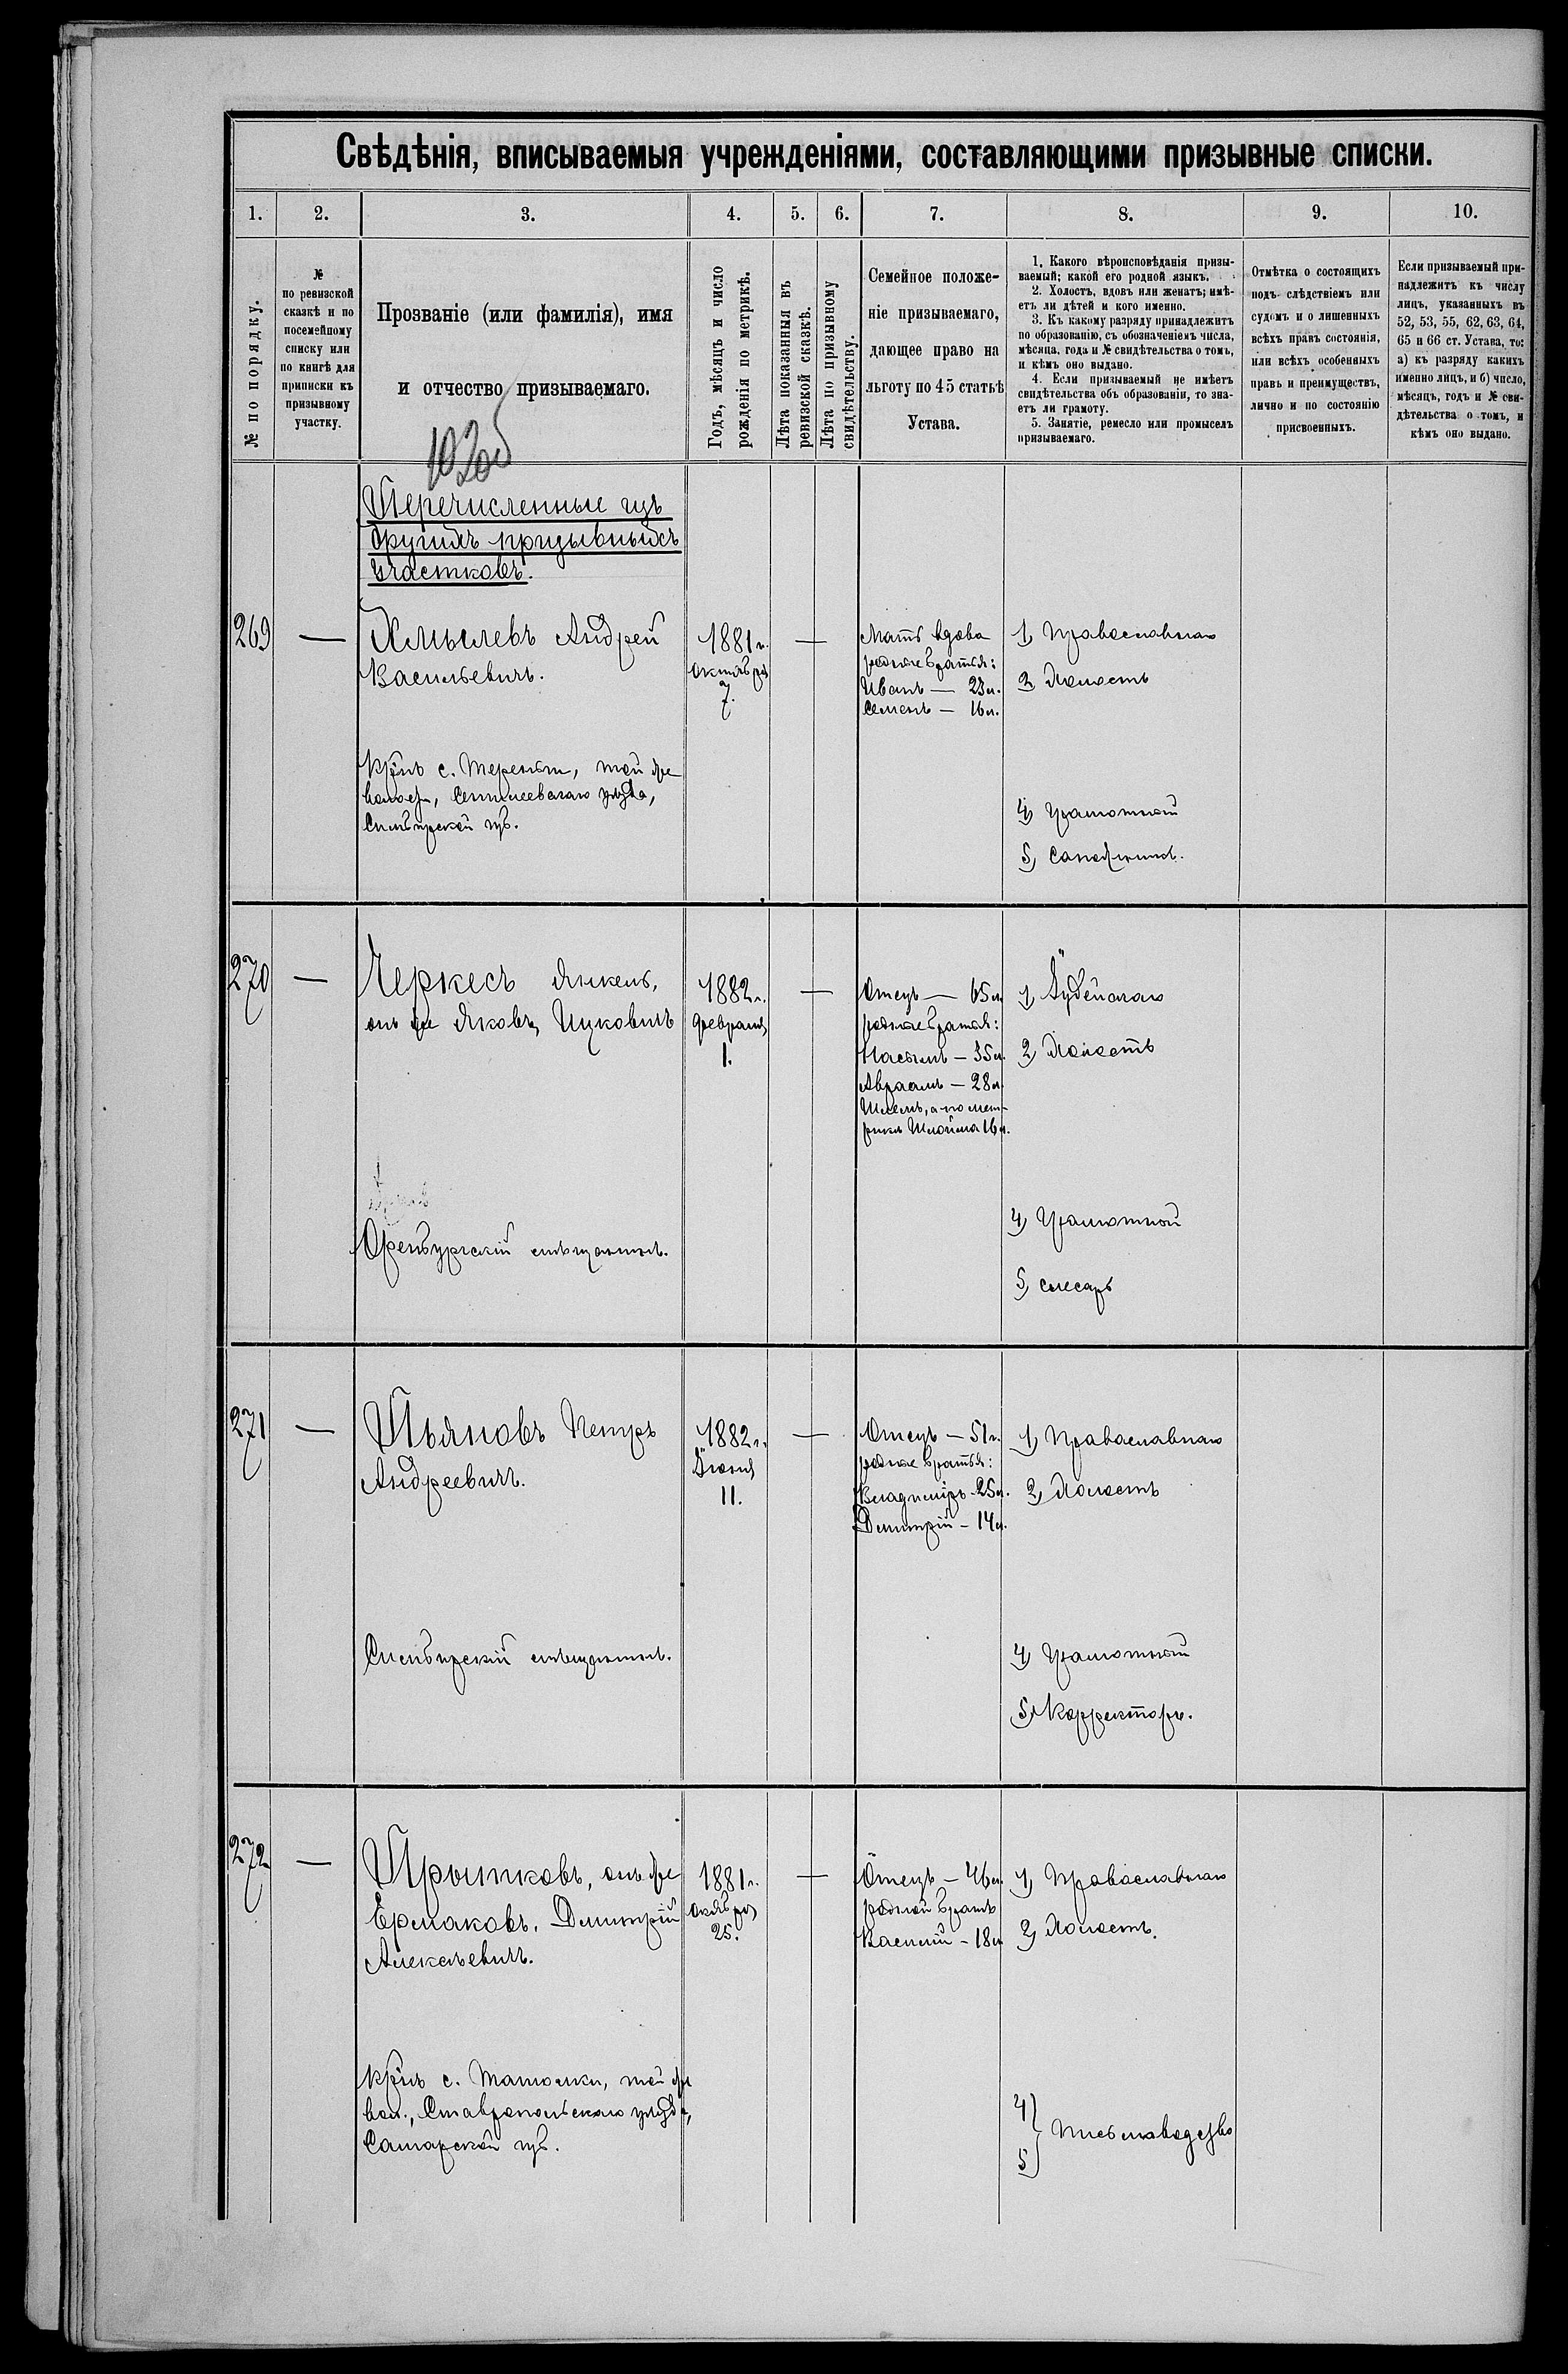 Свѣдѣнія, вписываемыя учрежденіями, составляющими призывные списки.
1. 2. 3. 4. 5. 6. 7. 8. 9. 10.
№ по порядку.
№
по ревизской
сказкѣ и по
посемейному
списку или
по книгѣ для
приписки къ
призывному
участку.
Прозваніе (или фамилія), имя
и отчество призываемаго.
Годъ, мѣсяцъ и число
рожденія по метрикѣ.
Лѣта показанныя въ
ревизской сказкѣ.
Лѣта по призывному
свидѣтельству.
Семейное положе-
ніе призываемаго,
дающее право на
льготу по 45 статьѣ
Устава.
1. Какого вѣроисповѣданія призы-
ваемый; какой его родной языкъ.
2. Холостъ, вдовъ или женатъ; имѣ-
етъ ли дѣтей и кого именно.
3. Къ какому разряду принадлежитъ
по образованію, съ обозначеніемъ числа,
мѣсяца, года и № свидѣтельства о томъ,
и кѣмъ оно выдано.
4. Если призываемый не имѣетъ
свидѣтельства объ образованіи, то зна-
етъ ли грамоту.
5. Занятіе, ремесло или промыселъ
призываемаго.
Отмѣтка о состоящихъ
подъ слѣдствіемъ или
судомъ и о лишенныхъ
всѣхъ правъ состоянія,
или всѣхъ особенныхъ
правъ и преимуществъ,
лично и по состоянію
присвоенныхъ.
Если призываемый при-
надлежитъ къ числу
лицъ, указанныхъ въ
52, 53, 55, 62, 63, 64,
65 и 66 ст. Устава, то:
а) къ разряду какихъ
именно лицъ, и б) число,
мѣсяцъ, годъ и № сви-
дѣтельства о томъ, и
кѣмъ оно выдано.
Перечисленные изъ
другихъ призывныхъ
участковъ.
269 — Хмылевъ Андрей
Васильевичъ.
Крнъ с. Тереньги, той же
волости, Сенгилеевскаго уѣзда,
Симбирской губ.
1881 г.
октября
7.
—
Мать вдова
родные братья:
Иванъ — 23 л.
Семенъ — 16 л.
1) Православнаго
2) Холостъ
4) Грамотный
5) Сапожникъ.
270 — Черкесъ Янкель,
онъ же Яковъ, Ицковичъ
Оренбургскій мѣщанинъ.
1882 г.
февраля
1.
—
Отецъ — 65 л.
родные братья:
— 35 л.
Авраамъ — 28 л.
а по мет-
рикѣ Шлойма 16 л.
1) Іудейскаго
2) Холостъ
4) Грамотный
5) слесарь
271 — Пьяновъ Петръ
Андреевичъ.
Симбирскій мѣщанинъ.
1882 г.
Іюня
11.
—
Отецъ — 51 г.
родные братья:
Владиміръ - 25 л.
Димитрій - 14 л.
1) Православнаго
2) Холостъ
4) Грамотный
5) Корректоръ.
272 — Прытковъ, онъ же
Ермаковъ, Димитрій
Алексѣевичъ.
Крнъ с. той же
вол., Ставропольскаго уѣзда,
Самарской губ.
1881 г.
октября
25.
—
Отецъ — 46 л.
родной братъ
Василій - 18 л.
1) Православнаго
2) Холостъ.
4)
5) Письмоводство